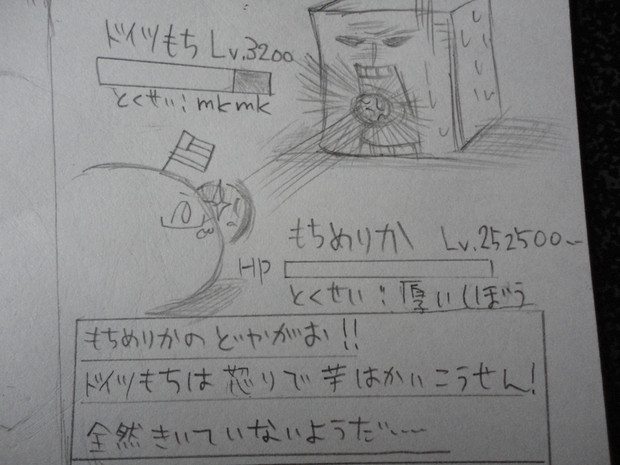 ドイツもち Lv.3200
とくせい:mkmk
もちめりか Lv.252500~
HP
とくせい:厚いしぼう
もちめりかのどやがお!!
ドイツもちは怒りで芋はかいこうせん!
全然きいていないようだ……